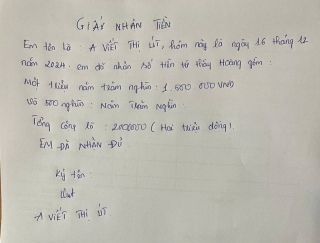 GIẤY NHẬN TIỀN
Em tên là : A VIẾT THỊ ÚT, hôm nay là ngày 16 tháng 12
năm 2024. em đã nhận số tiền từ thầy Hoàng gồm :
Một triệu năm trăm nghìn : 1.500 000 VNĐ
Và 500 nghìn : Năm Trăm Nghìn.
Tổng cộng là : 2000000 ( Hai triệu đồng ).
EM ĐÃ NHẬN ĐỦ
Ký tên
Út
A VIẾT THỊ ÚT